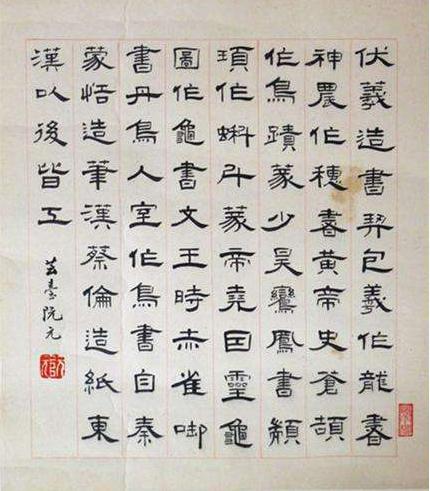 伏羲造書契包羲作龍書
神農作穗書黃帝史蒼頡
作鳥蹟篆少昊鸞鳳書顓
頊作蝌斗篆帝堯因靈龜
圖作龜書文王時赤雀啣
書丹鳥入室作鳥書自秦
蒙恬造筆漢蔡倫造紙東
漢以後皆工
芸臺阮元